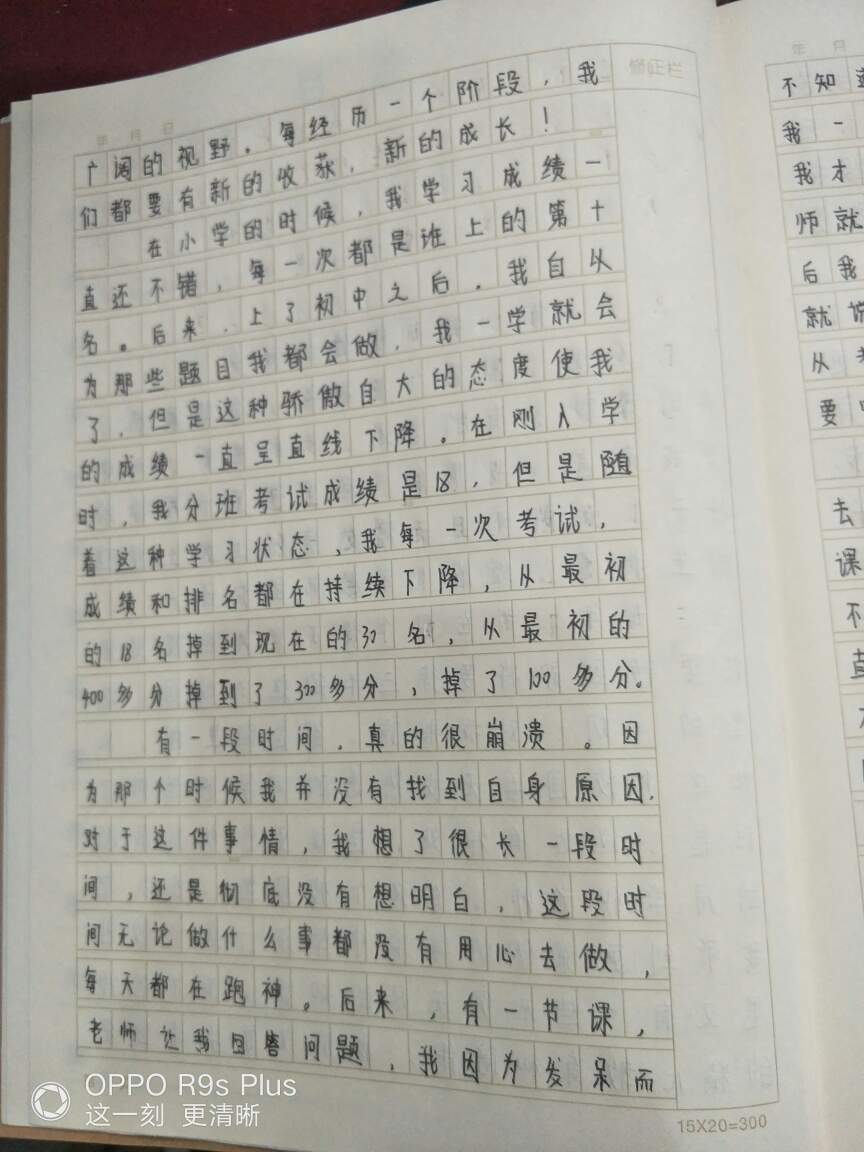 年 月 日
修正栏
广阔的视野。每经历一个阶段，我
们都要有新的收获，新的成长！
在小学的时候，我学习成绩一
直还不错，每一次都是班上的第十
名。后来，上了初中之后。我自从
为那些题目我都会做，我一学就会
了，但是这种骄傲自大的态度使我
的成绩一直呈直线下降。在刚入学
时，我分班考试成绩是18，但是随
着这种学习状态，我每一次考试，
成绩和排名都在持续下降，从最初
的18名掉到现在的30名，从最初的
400多分掉到了300多分，掉了100多分。
有一段时间，真的很崩溃。因
为那个时候我并没有找到自身原因.
对于这件事情，我想了很长一段时
间，还是彻底没有想明白，这段时
间无论做什么事都没有用心去做，
每天都在跑神。后来，有一节课，
老师让我回答问题，我因为发呆而
15X20=300
年 月
不知
我一
我才
师就
后我
就说
从
要
去
课
不
直
OPPO R9s Plus
这一刻 更清晰